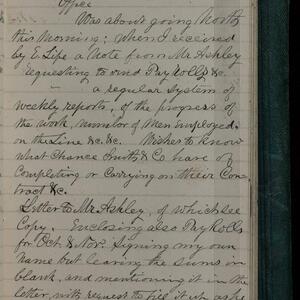 Office
Was about going North
this Morning; when I received
by E. Lipe a Note from Mr Ashley
requesting to send Pay Rolls &c.
— a regular System of
weekly reports, of the progress of
the work, number of Men employed.
on the Line &c. &c. Wishes to know
what Chance Smith & Co have of
Completing or Carrying on their Con
tract &c.
Letter to Mr. Ashley, of which see
Copy. Enclosing also Pay Rolls
for Oct. & Nov. Signing my own
name but leaving the sums in
blank, and mentioning it in the
letter, with request to fill it up as he